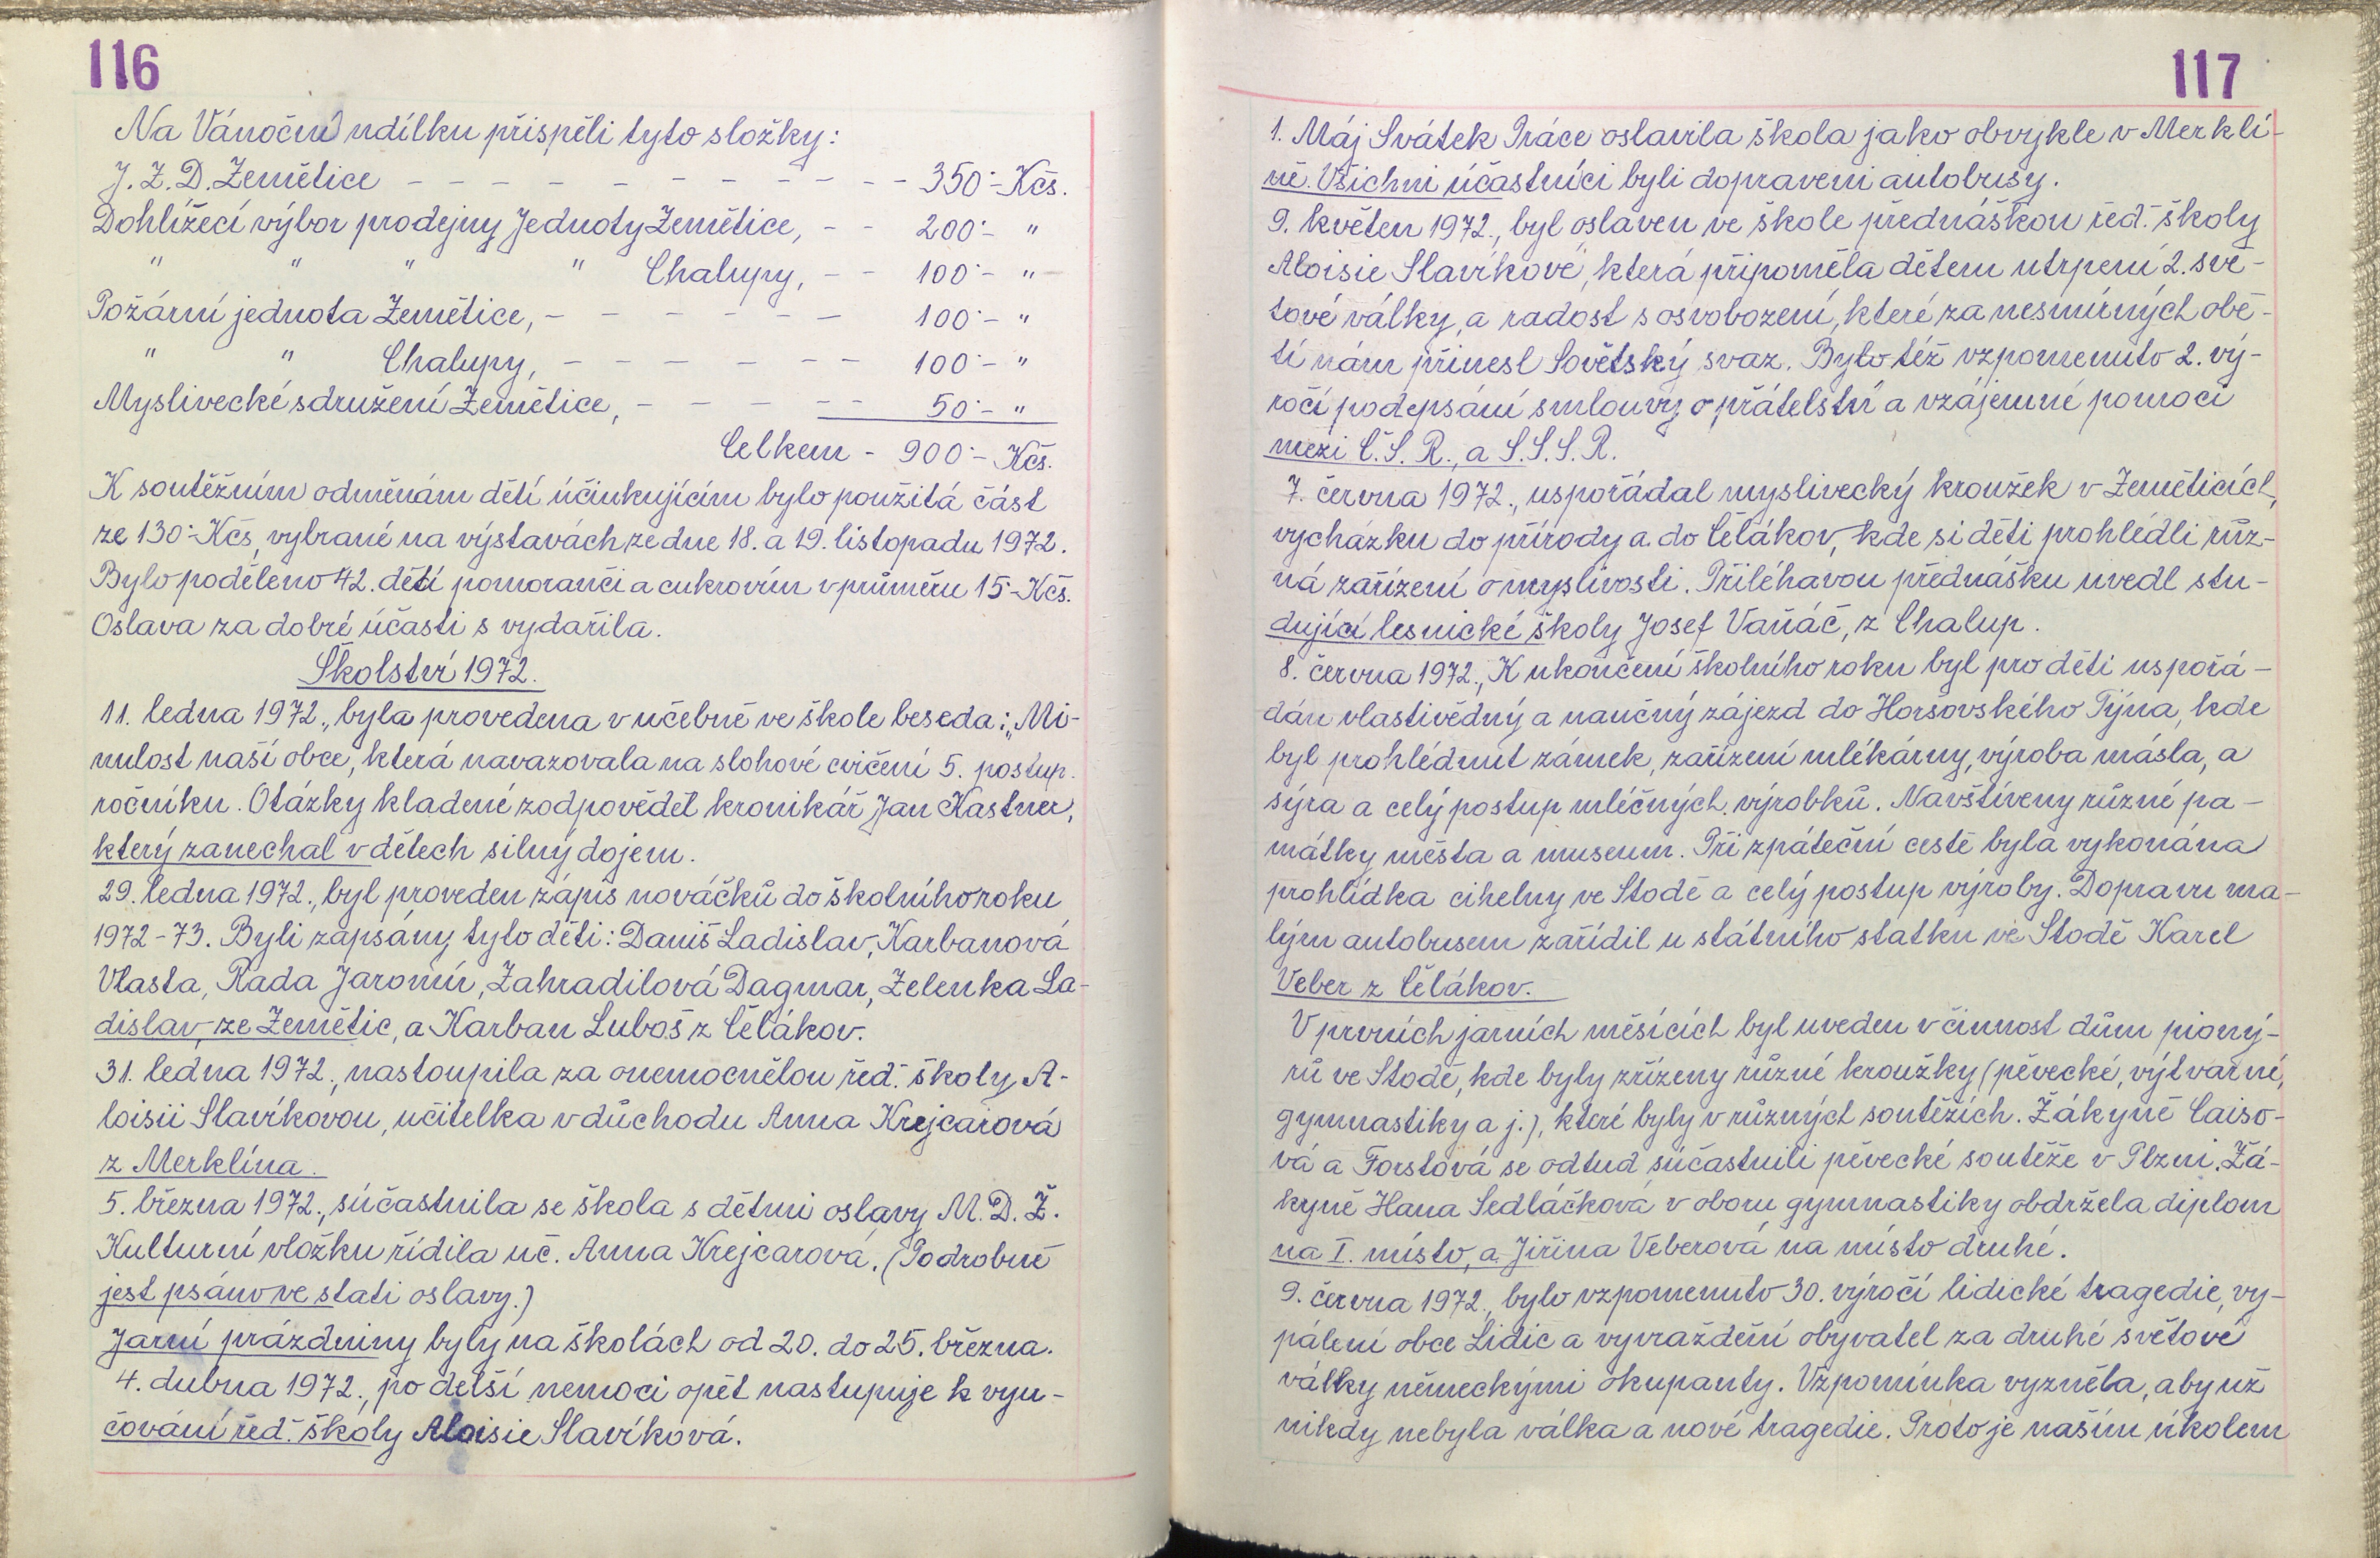 116
Na Vánoční nadílku přispěli tyto složky:
J. Z. D. Zemětice - - - - - - - - - - - 350·- Kčs.
Dohlížecí výbor prodejny Jednoty Zemětice, - - 200·- "
" " " " Chalupy, - - 100·- "
Požární jednota Zemětice, - - - - - - 100·- "
" " Chalupy, - - - - - - 100·- "
Myslivecké sdružení Zemětice, - - - - - 50·- "
Celkem - 900·- Kčs.
K soutěžním odměnám dětí účinkujícím bylo použitá část
ze 130·- Kčs, vybrané na výstavách ze dne 18. a 19. listopadu 1972.
Bylo poděleno 42. dětí pomoranči a cukrovím v průměru 15·- Kčs.
Oslava za dobré účasti s vydařila.
Školství 1972.
11. ledna 1972., byla provedena v učebně ve škole beseda: „Mi-
nulost naší obce, která navazovala na slohové cvičení 5. postup.
ročníku. Otázky kladené zodpověděl kronikář Jan Kastner,
který zanechal v dětech silný dojem.
29. ledna 1972., byl proveden zápis nováčků do školního roku
1972-73. Byli zapsány tyto děti: Daniš Ladislav, Karbanová
Vlasta, Rada Jaromír, Zahradilová Dagmar, Zelenka La-
dislav, ze Zemětic, a Karban Luboš z Čelákov.
31. ledna 1972., nastoupila za onemocnělou řed. školy A-
loisii Slavíkovou, učitelka v důchodu Anna Krejcarová
z Merklína.
5. března 1972., súčastnila se škola s dětmi oslavy M. D. Ž.
Kulturní vložku řídila uč. Anna Krejcarová. (Podrobně
jest psáno ve stati oslavy.)
Jarní prázdniny byly na školách od 20. do 25. března.
4. dubna 1972., po delší nemoci opět nastupuje k vyu-
čování řed. školy Aloisie Slavíková.
117
1. Máj Svátek Práce oslavila škola jako obvykle v Merklí-
ně. Všichni účastníci byli dopraveni autobusy.
9. květen 1972., byl oslaven ve škole přednáškou řed. školy
Aloisie Slavíkové, která připoměla dětem utrpení 2. svě-
tové války, a radost s osvobození, které za nesmírných obě-
tí nám přinesl Sovětský svaz. Bylo též vzpomenuto 2. vý-
ročí podepsání smlouvy o přátelství a vzájemné pomoci
mezi Č. S. R., a S. S. S. R.
7. června 1972., uspořádal myslivecký kroužek v Zeměticích,
vycházku do přírody a do Čelákov, kde si děti prohlédli růz-
ná zařízení o myslivosti. Přiléhavou přednášku uvedl stu-
dující lesnické školy Josef Vaňáč, z Chalup.
8. června 1972., K ukončení školního roku byl pro děti uspořá-
dán vlastivědný a naučný zájezd do Horsovského Týna, kde
byl prohlédnut zámek, zařízení mlékárny, výroba másla, a
sýra a celý postup mléčných výrobků. Navštíveny různé pa-
mátky města a museum. Při zpáteční cestě byla vykonána
prohlídka cihelny ve Stodě a celý postup výroby. Dopravu ma-
lým autobusem zařídil u státního statku ve Stodě Karel
Veber z Čelákov.
V prvních jarních měsících byl uveden v činnost dům pioný-
rů ve Stodě, kde byly zřízeny různé kroužky (pěvecké, výtvarné,
gymnastiky a j.), které byly v různých soutěžích. Žákyně Caiso-
vá a Forstová se odtud súčastnili pěvecké soutěže v Plzni. Žá-
kyně Hana Sedláčková v oboru gymnastiky obdržela diplom
na I. místo, a Jiřina Veberová na místo druhé.
9. června 1972., bylo vzpomenuto 30. výročí lidické tragedie, vy-
pálení obce Lidic a vyvraždění obyvatel za druhé světové
války německými okupanty. Vzpomínka vyzněla, aby už
nikdy nebyla válka a nové tragedie. Proto je naším úkolem